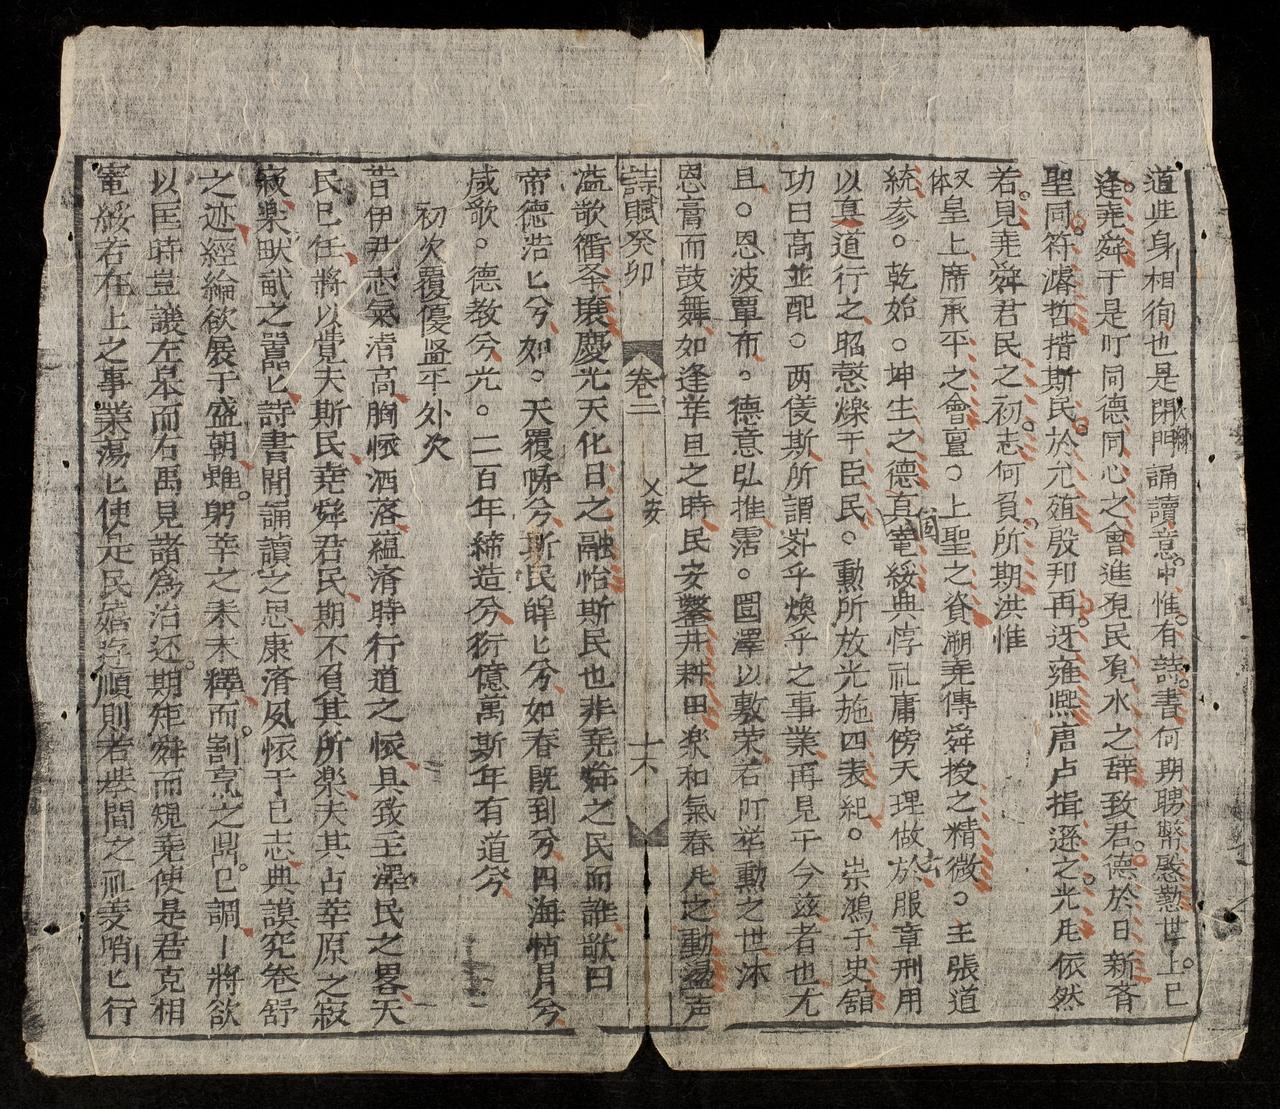 道些身相徇也是閉門誦讀意中惟有詩書何期聘幣慇懃世上已
逢堯舜于是叮同德同心之會進覌民覌水之辞致君德於日新斉
聖同符濬哲措斯民於允殖殷邦再迓雍熙唐占揖遜之光凡依然
若見堯舜君民之初志何負所期洪惟
皇上席承平之會亶。上聖之資溯堯傳舜授之精微。主張道
統参。乾始。坤生之德真竜綏典惇礼庸傍天理做於服章刑用
以直道行之昭慤爍于臣民。勳所放光施四表紀。崇鴻于史舘
功曰高並配。两儀斯所謂㟏乎煥乎之事業再見于今兹者也尢
且。恩波覃布。德意弘推霑。圌澤以敷荣若叮㳟勳之世沐
恩膏而鼓舞如逢年旦之時民安鑿井耕田楽和氣春凡之動盪声
詩賦癸卯 卷二 乂安 十六
溢歌衢夅康慶光天化日之融怡斯民也非堯舜之民而誰歌曰
帝德浩匕兮如。天覆幬兮斯民皞匕兮如春既到兮四海恬月兮
咸歌。德教兮光。二百年締造兮衍億萬斯年有道兮
初次覆優竖平外次
昔伊尹志氣清高胸懷洒落蘊済時行道之懷具致王澤民之畧天
民已任將以覺夫斯民堯舜君民期不負其所楽夫其占莘原之寂
寂楽畎畝之嚣匕詩書開誦讀之思康済夙懷于已志典謨究卷舒
之迹經綸欲展于盛朝雖躬莘之耒未釋而割烹之鼎已調將欲
以匡時豈讓左皋而右禹見諸為治还期矩舜而䂓堯使是君克相
竜綏若在上之事業蕩匕使是民嬉存順則若巷間之祉麦哨匕行